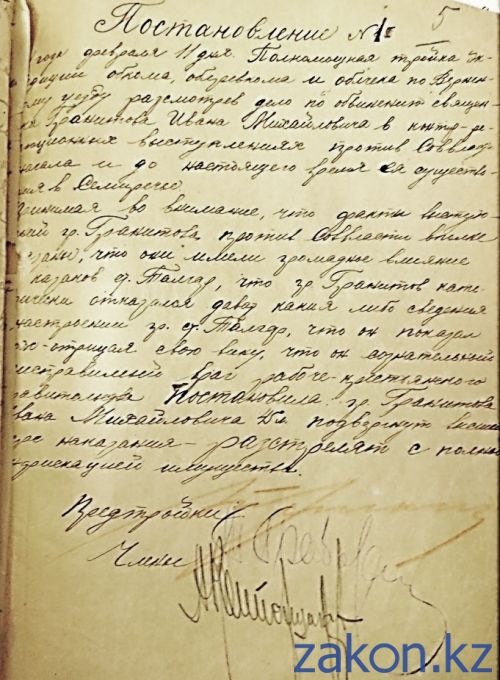 Постановление №1
5
года февраля 11 дня. Полномощная тройка Эк-
обкома, облревкома и облчека по Вернен-
уезду разсмотрев дело по обвинению священ-
Гранитова Ивана Михайловича в контр-ре-
ционных выступлениях против Соввласти
начала и до настоящего время ея существо-
ия в Семиречье.
ринимая во внимание, что факты выступ-
ний гр. Гранитова против Соввласти вполне
заны, что они имели громадное влияние
казаков ст. Талгар, что гр. Гранитов кате-
рически отказался давать какия либо сведения
настроении гр. ст. Талгар, что он показал
отрицая свою вину, что он сознательный
исправимый враг рабоче-крестьянского
равительства Постановила: гр. Гранитова
вана Михайловича подвергнуть высшей
ре наказания – разстрелят с полной
нфискацией имущества.
Предтройки
Члены
zakon.kz